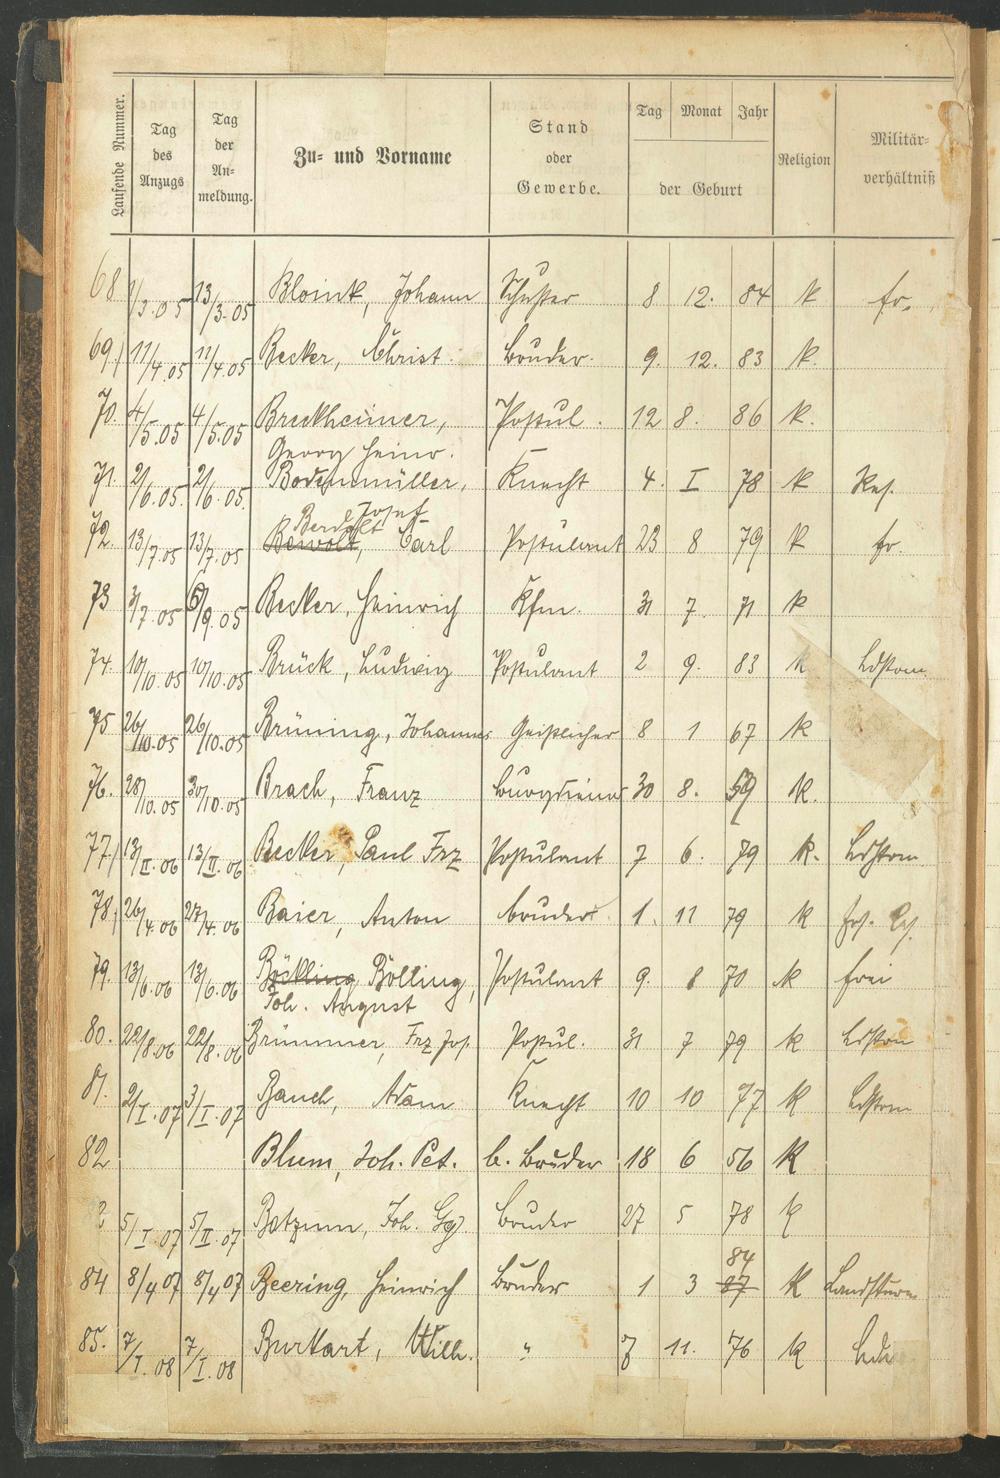 Laufende Nummer.
Tag des Anzugs
Tag der An- meldung.
Zu- und Vorname
Stand oder Gewerbe.
Tag Monat Jahr
der Geburt
Religion
Militär- verhältniß
68 1/3.05 13/3.05 Bloink, Johann Schuster 8 12. 84 k fr.
69 11/4.05 11/4.05 Becker, Christ. Bruder. 9. 12. 83 k.
70. 4/5.05 4/5.05 Breckheimer, Postul. 12 8. 86 k.
Georg Heinr.
71. 2/6.05. 2/6.05. Bodenmüller, Knecht 4. I 78 k Res.
Josef
Berdolt
72. 13/7.05 13/7.05 Carl Postulant 23 8 79 k fr.
73 3/7.05 6/9.05 Becker, Heinrich Kfm. 31 7. 71 k
74. 10/10.05 10/10.05 Brück, Ludwig Postulant 2 9. 83 k Ldstrm
75 26/10.05 26/10.05 Brüning, Johannes Geistlicher 8 1 67 k
76. 28/10.05 30/10.05 Brach, Franz 30 8. 59 k.
77 13/II.06 13/II.06 Becker, Paul Frz Postulant 7 6. 79 k. Ldstrm
78 26/4.06 27/4.06 Baier, Anton Bruder 1. 11 79 k
79. 13/6.06 13/6.06 Böckling Bölling, Postulant 9. 8 70 k frei
Joh. August
80. 22/8.06 22/8.06 Brümmer, Frz Jos. Postul. 31 7 79 k Ldstrm
81. 2/I.07 3/I.07 Bauch, Adam Knecht 10 10 77 k Ldstrm
82 Blum, Joh. Pet. b. Bruder 18 6 56 k
5/I.07 5/II.07 Batzum, Joh. Gg. Bruder 27 5 78 k
84
84 8/4 07 8/4 07 Beering, Heinrich Bruder 1 3 87 k Landsturm
85. 7/I.08 7/I.08 Burkart, Wilh. " 7 11. 76 k